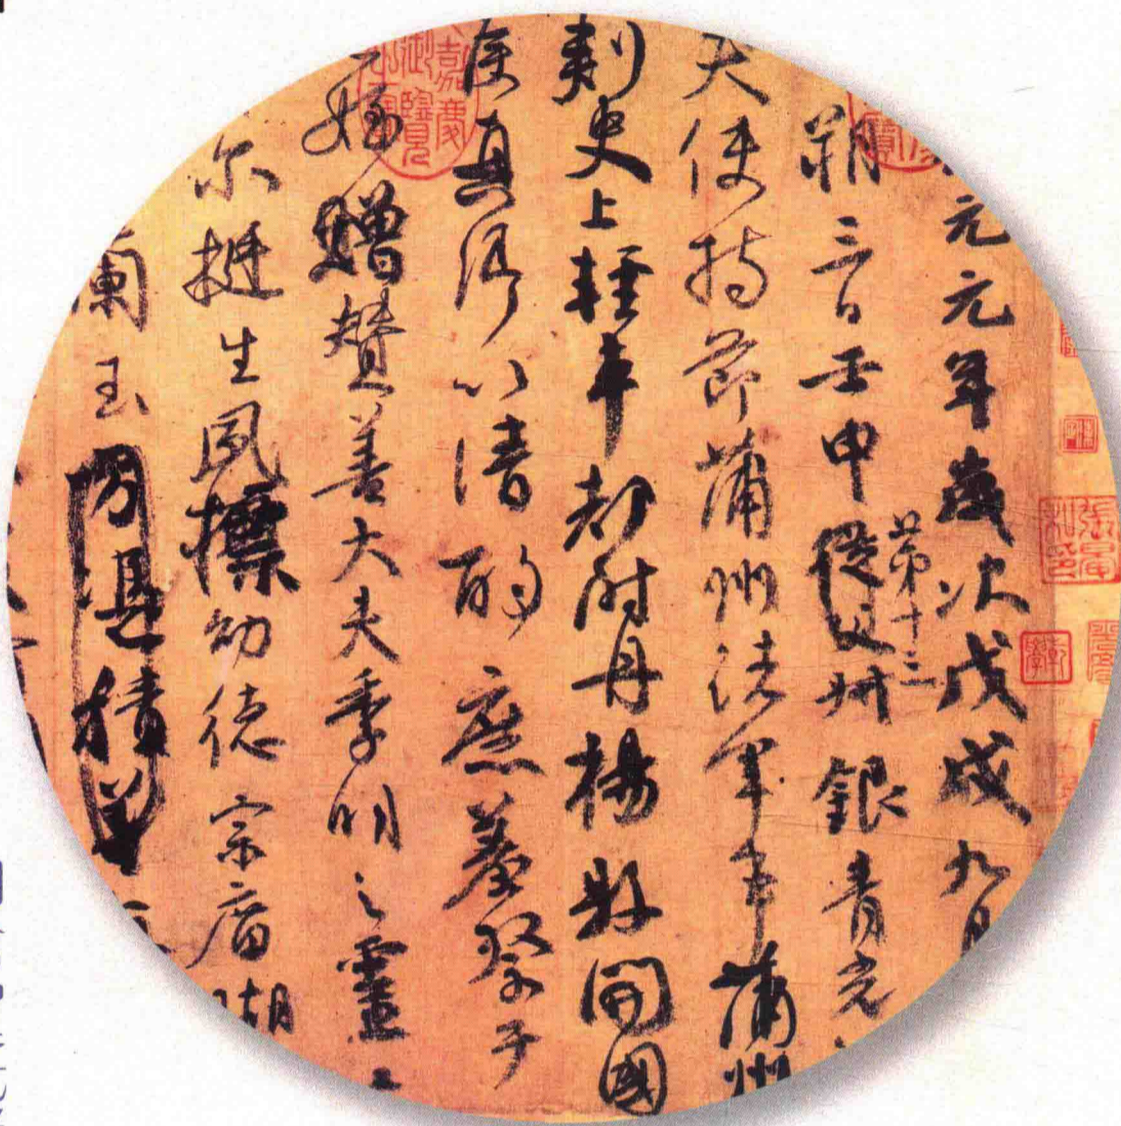 元元年歲次戊戌九月
朔三日壬申第十三從父叔銀青光
夫使持節蒲州諸軍事蒲州
刺史上輕車都尉丹楊縣開國
侯真卿以清酌庶羞祭于
姪贈贊善大夫季明之靈
尔挺生夙標幼德宗廟瑚
蘭玉